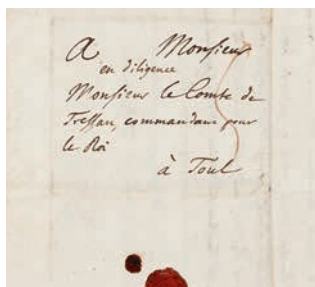 A Monsieur
en diligence
Monsieur le Comte de
Tressan, commandant pour
le Roi
à Toul